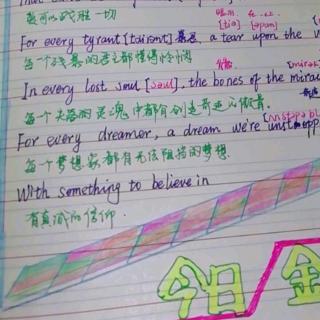 爱可以战胜一切
For every tyrant [tairənt] 暴君, a tear upon the
每个残暴的君主都懂得怜悯
In every lost soul [səul], the bones of the mirac
每个失落的灵魂中都有创造奇迹的傲骨.
For every dreamer, a dream we're unstopp
每个梦想家都有无住阻挡的梦想.
With something to believe in
有真诚的信仰.
今日金